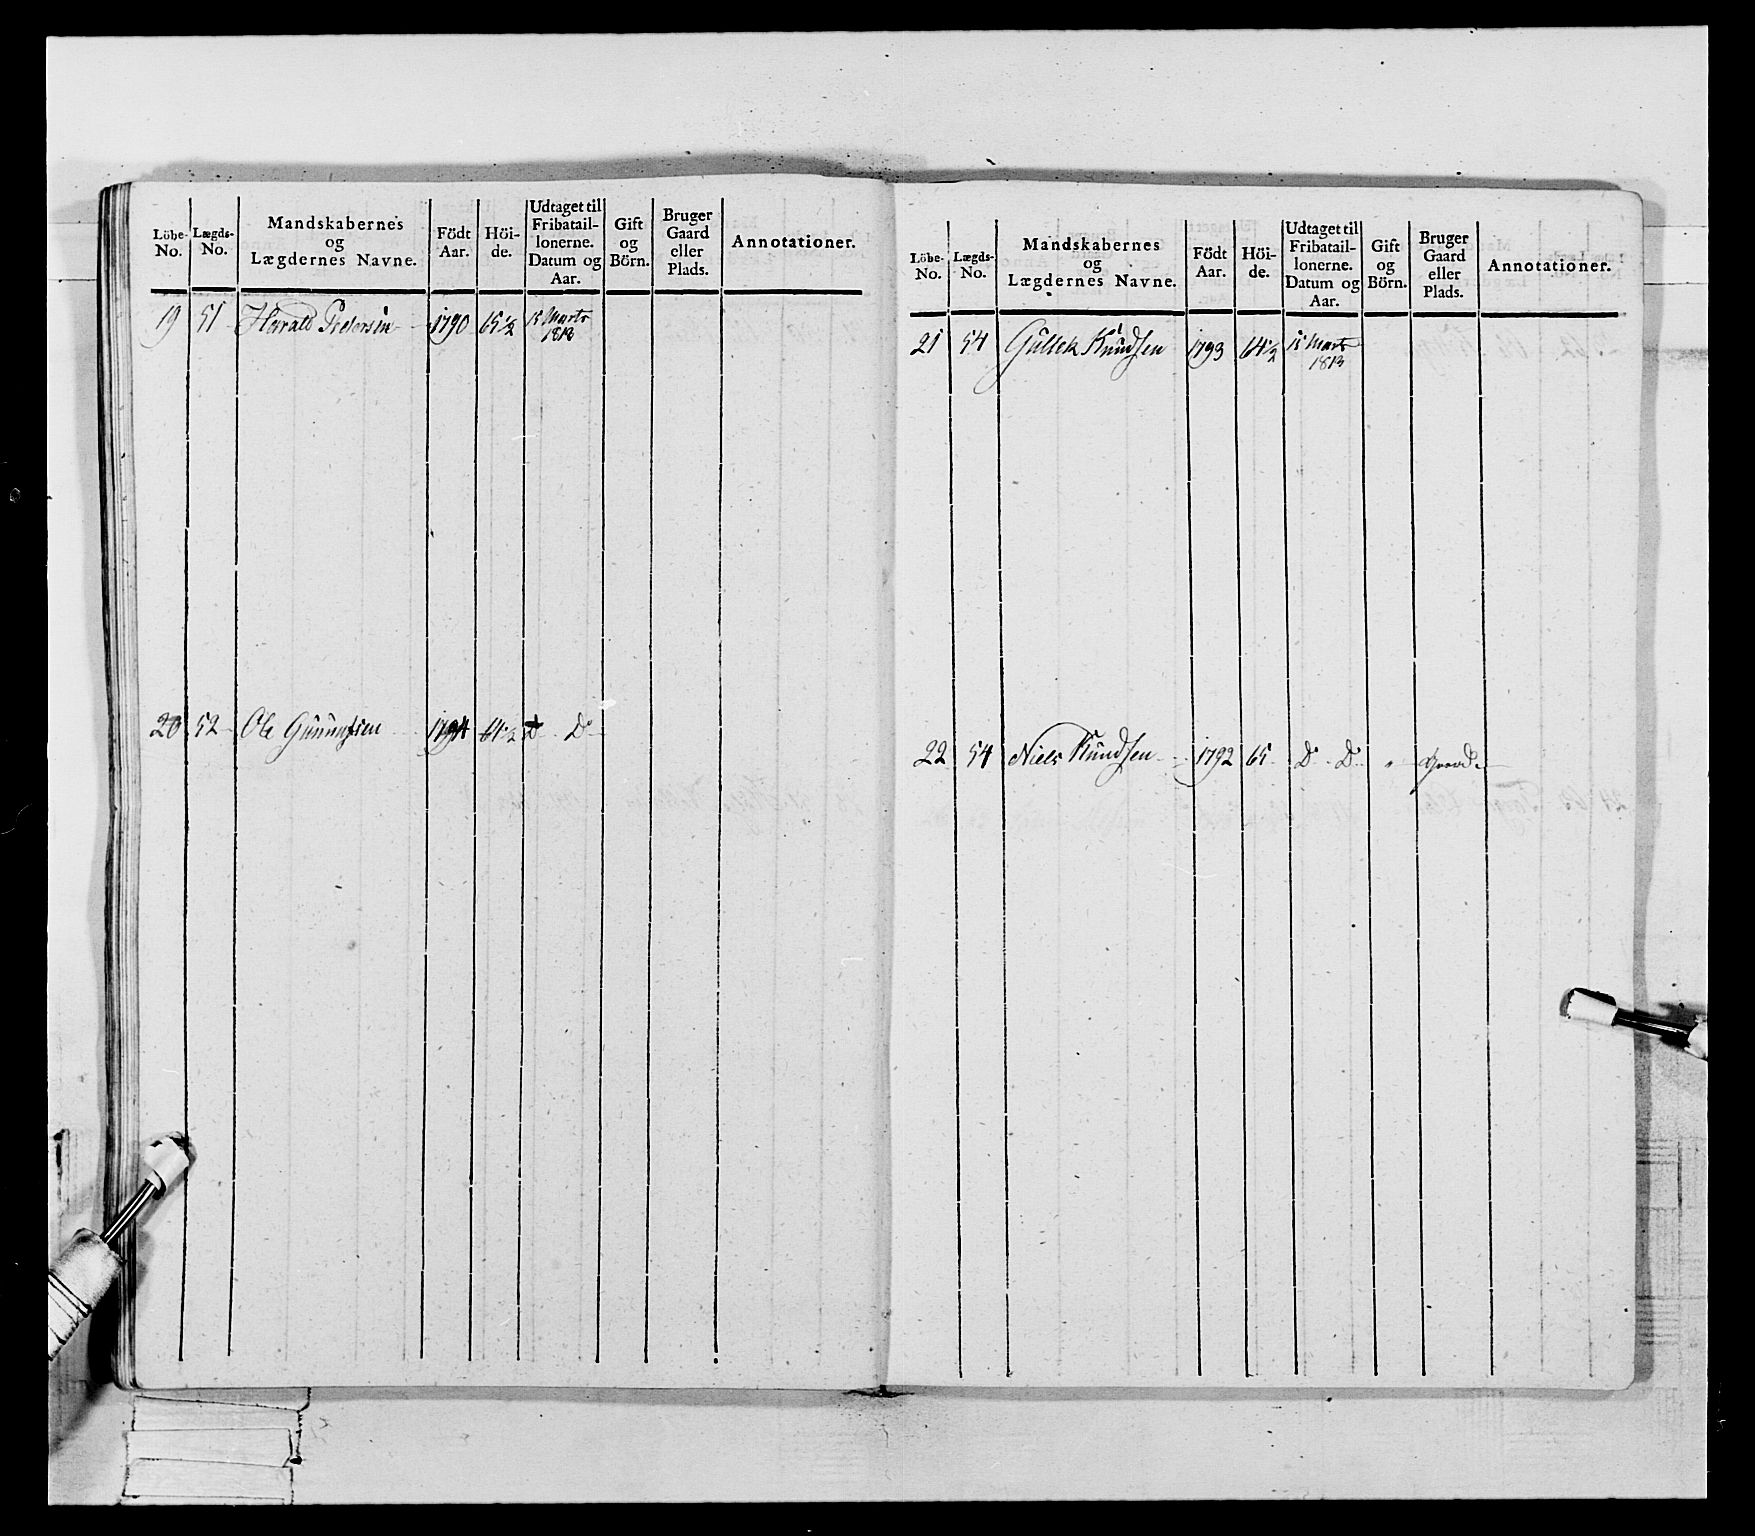 Löbe-No. Lægds-No. Mandskabernes og Lægdernes Navne. Födt Aar. Höi-de. Udtaget til Fribatail-lonerne. Datum og Aar. Gift og Börn. Bruger Gaard eller Plads. Annotationer.
19 51 Harald Pedersen 1790 65 1/2 15 Marts 1813
20 52 Ole 1794 64 1/2 D° D°
Löbe-No. Lægds-No. Mandskabernes og Lægdernes Navne. Födt Aar. Höi-de. Udtaget til Fribatail-lonerne. Datum og Aar. Gift og Börn. Bruger Gaard eller Plads. Annotationer.
21 54 Gullek Knudsen 1793 64 1/2 15 Marts 1813
22 54 Niels Knudsen 1792 65 D° D° "